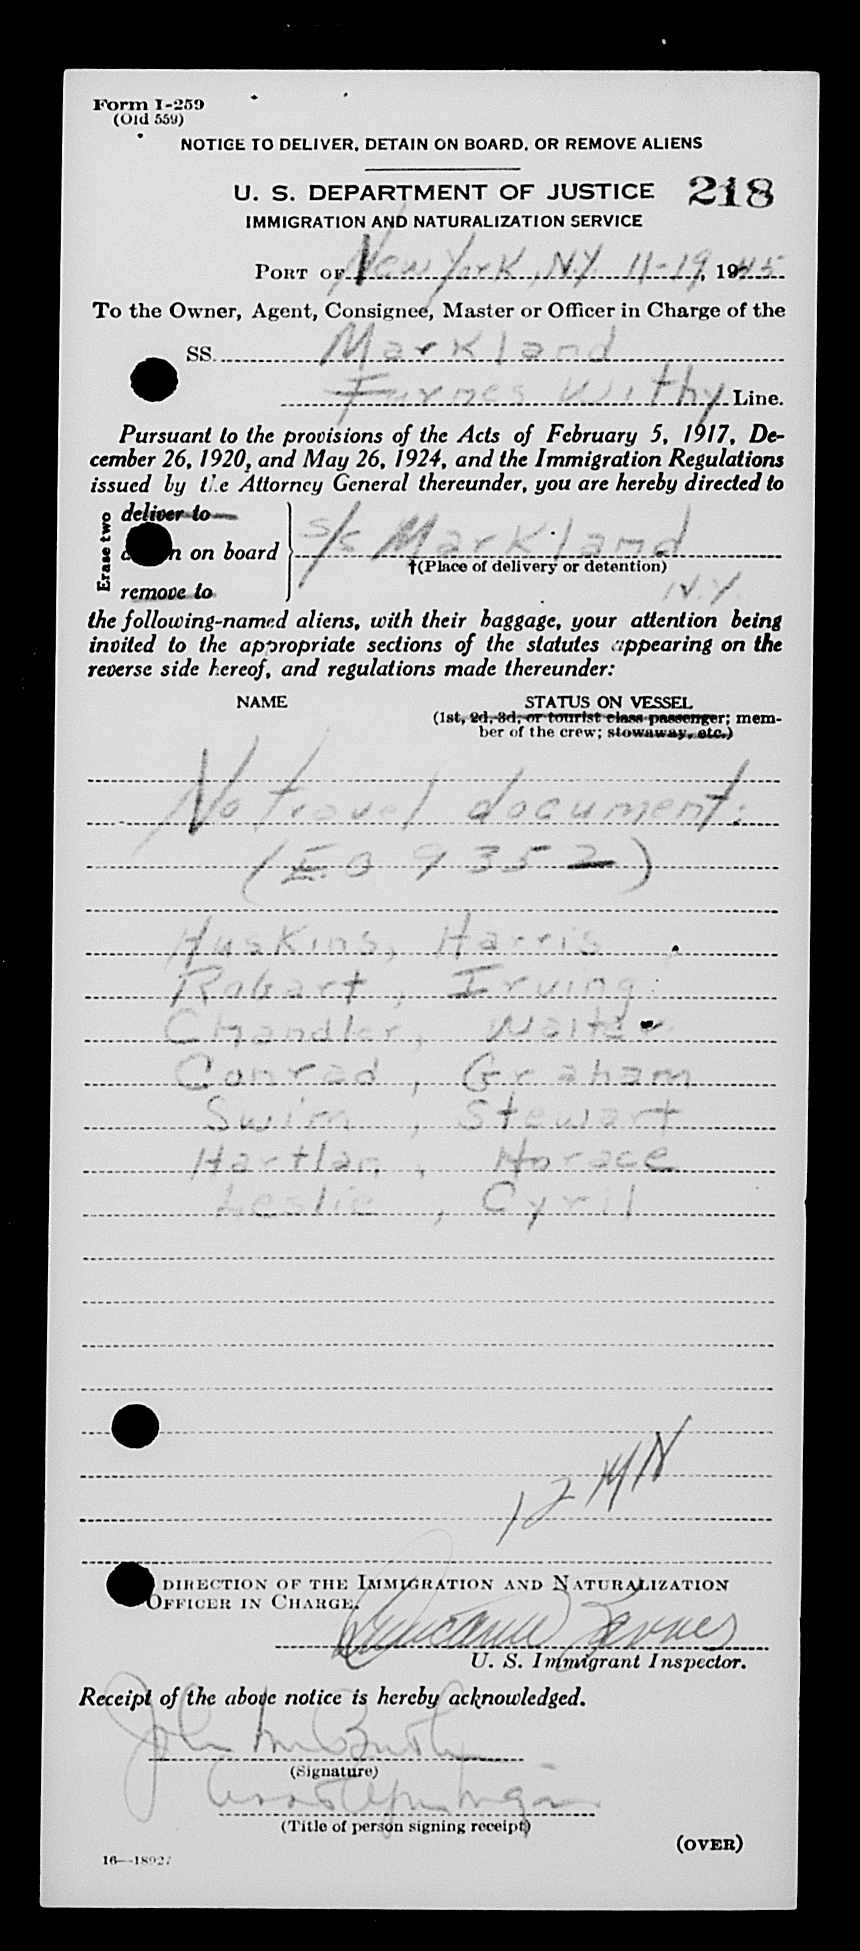 Form I-259
(Old 559)
NOTICE TO DELIVER, DETAIN ON BOARD, OR REMOVE ALIENS
U. S. DEPARTMENT OF JUSTICE 218
IMMIGRATION AND NATURALIZATION SERVICE
PORT OF New York, N.Y. 11-19, 1945
To the Owner, Agent, Consignee, Master or Officer in Charge of the
SS. Markland
Furnes Withy Line.
Pursuant to the provisions of the Acts of February 5, 1917, De-
cember 26, 1920, and May 26, 1924, and the Immigration Regulations
issued by the Attorney General thereunder, you are hereby directed to
Erase two
deliver to
on board s/s Markland
†(Place of delivery or detention)
remove to N.Y.
the following-named aliens, with their baggage, your attention being
invited to the appropriate sections of the statutes appearing on the
reverse side hereof, and regulations made thereunder:
NAME STATUS ON VESSEL
(1st, 2d, 3d, or tourist class passenger; mem-
ber of the crew; stowaway, etc.)
No travel document:
(E.O 9352)
Huskins, Harris
Robart, Irving
Chandler, Walter
Conrad, Graham
Swim, Stewart
Hartlan, Horace
Leslie, Cyril
12 MN
DIRECTION OF THE IMMIGRATION AND NATURALIZATION
OFFICER IN CHARGE.
U. S. Immigrant Inspector.
Receipt of the above notice is hereby acknowledged.
John
(Signature)
(Title of person signing receipt)
(OVER)
16—18927